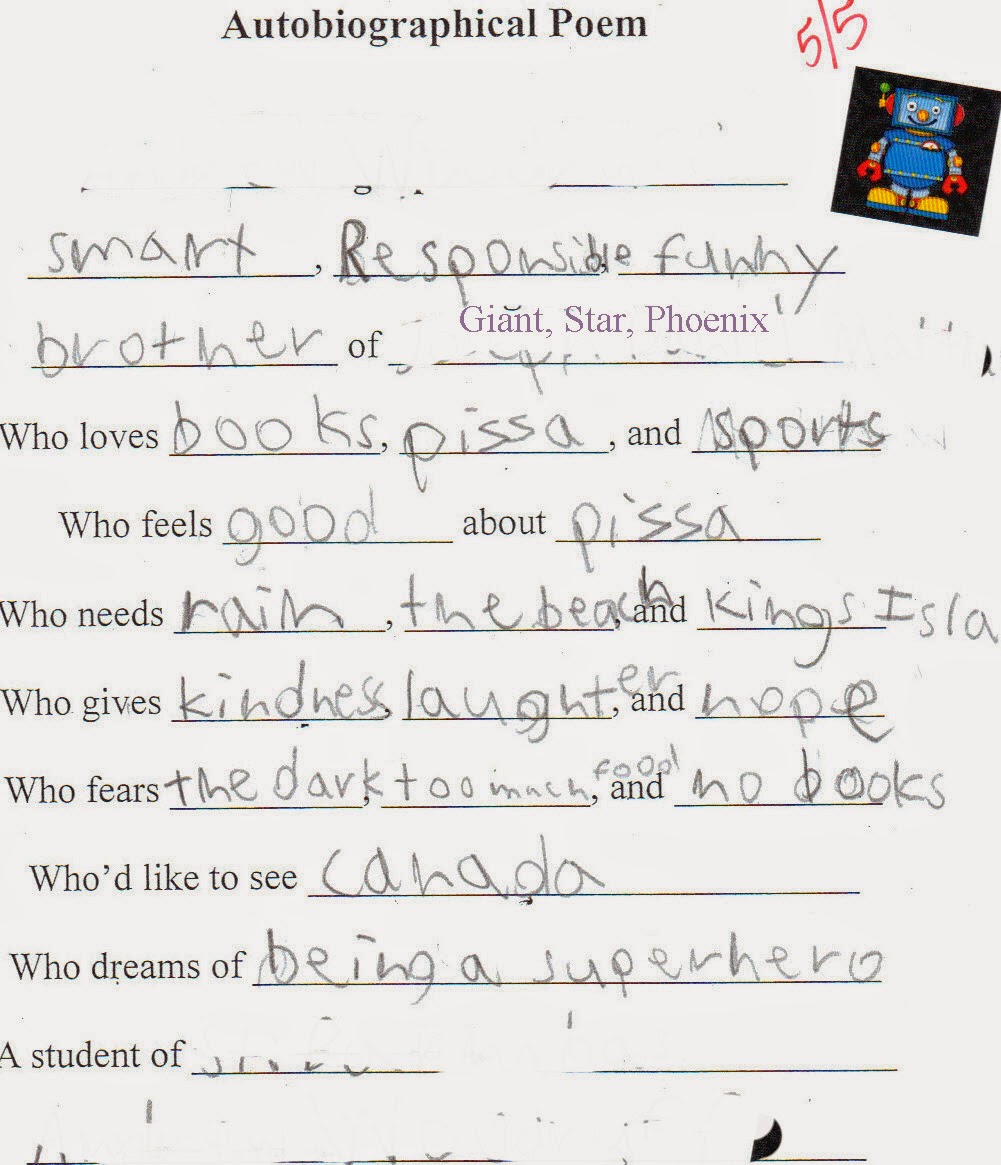 Autobiographical Poem
5/5
smart, Responsible, funny
brother of Giant, Star, Phoenix
Who loves books, pissa, and sports
Who feels good about pissa
Who needs rain, the beach, and Kings Isla
Who gives kindness, laughter, and hope
Who fears the dark, too much food, and no books
Who'd like to see canada
Who dreams of being a superhero
A student of